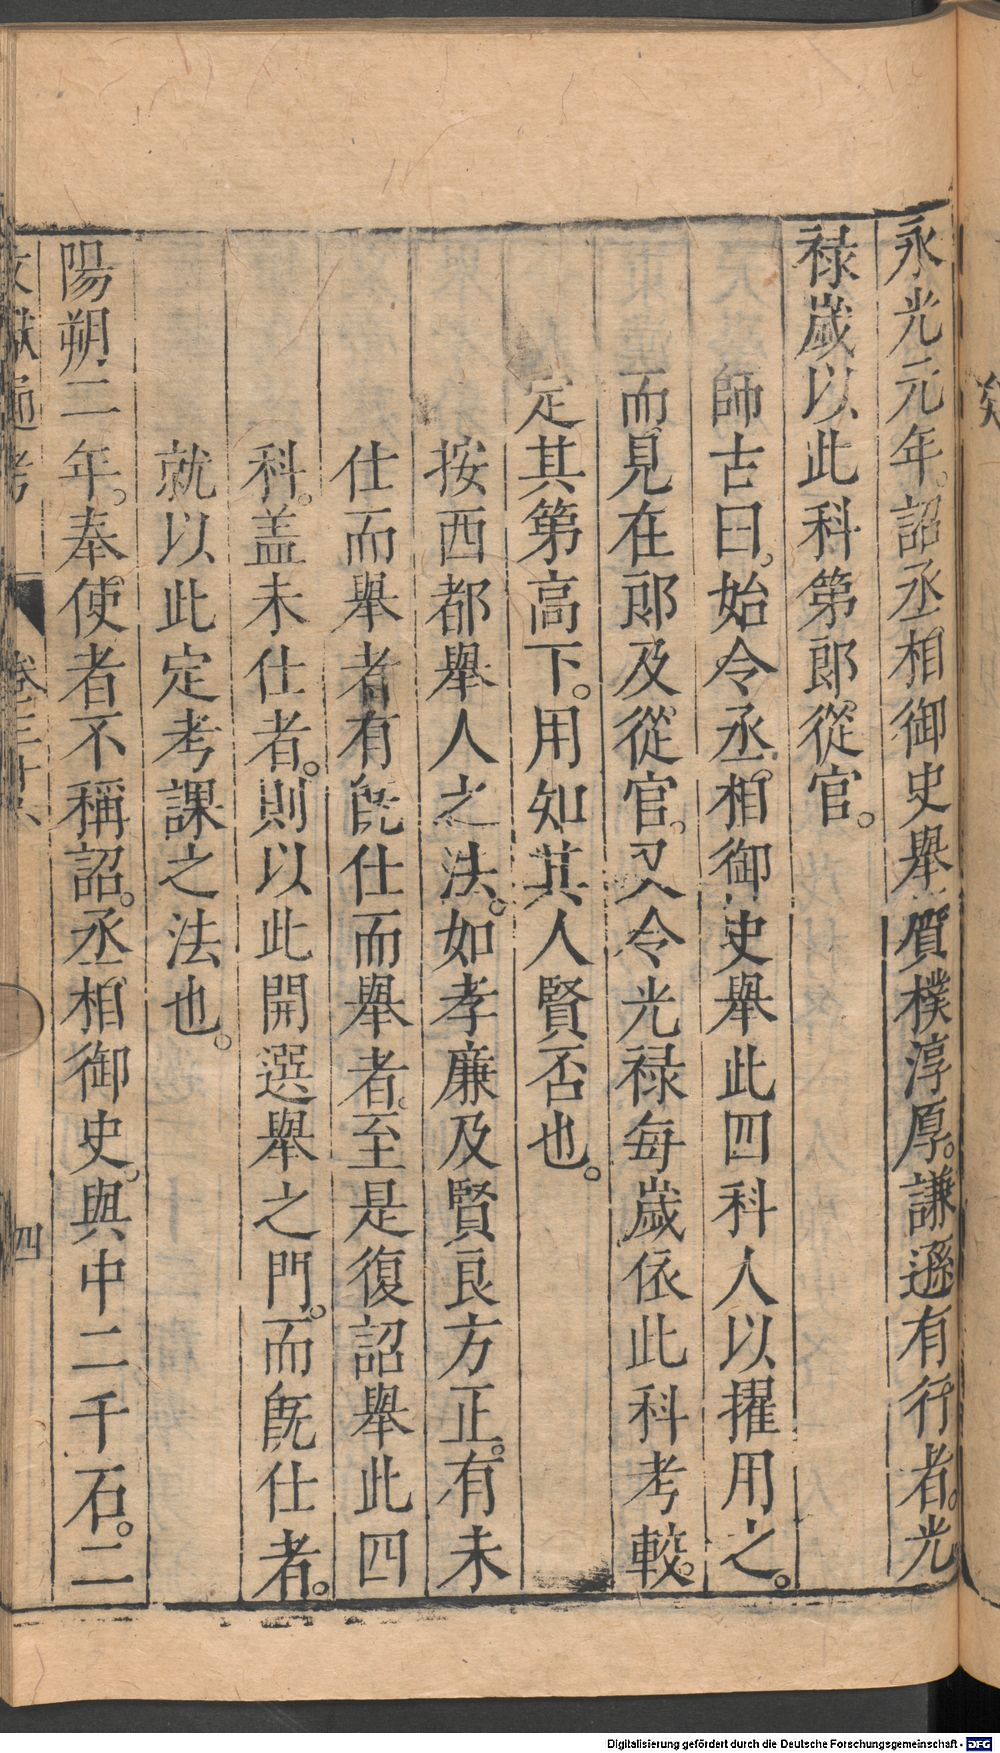 永光元年。詔丞相御史舉質樸淳厚。謙遜有行者。光
禄歲以此科第郎從官。
師古曰。始令丞相御史舉此四科人以擢用之。
而見在郎及從官。又令光禄每歲依此科考較。
定其第高下。用知其人賢否也。
按西都舉人之法。如孝廉及賢良方正。有未
仕而舉者有旣仕而舉者。至是復詔舉此四
科。盖未仕者。則以此開選舉之門。而旣仕者。
就以此定考課之法也。
陽朔二年。奉使者不稱詔。丞相御史。與中二千石。二
文獻通考
卷三十六
四
Digitalisierung gefördert durch die Deutsche Forschungsgemeinschaft - DFG